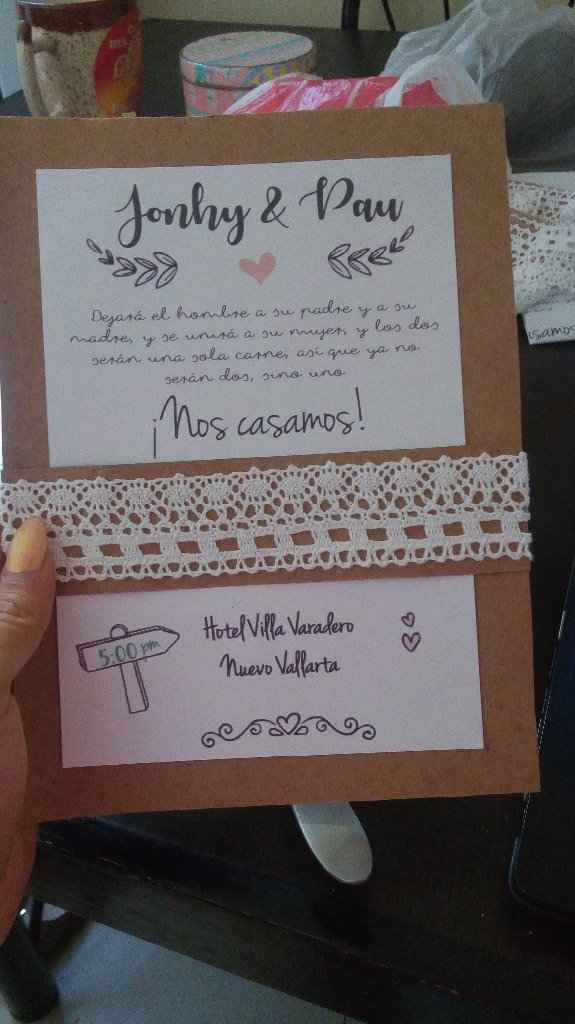 Jonhy & Pau
Dejará el hombre a su padre y a su
madre, y se unirá a su mujer, y los dos
serán una sola carne, así que ya no
serán dos, sino uno
¡Nos casamos!
5:00 pm
Hotel Villa Varadero
Nuevo Vallarta